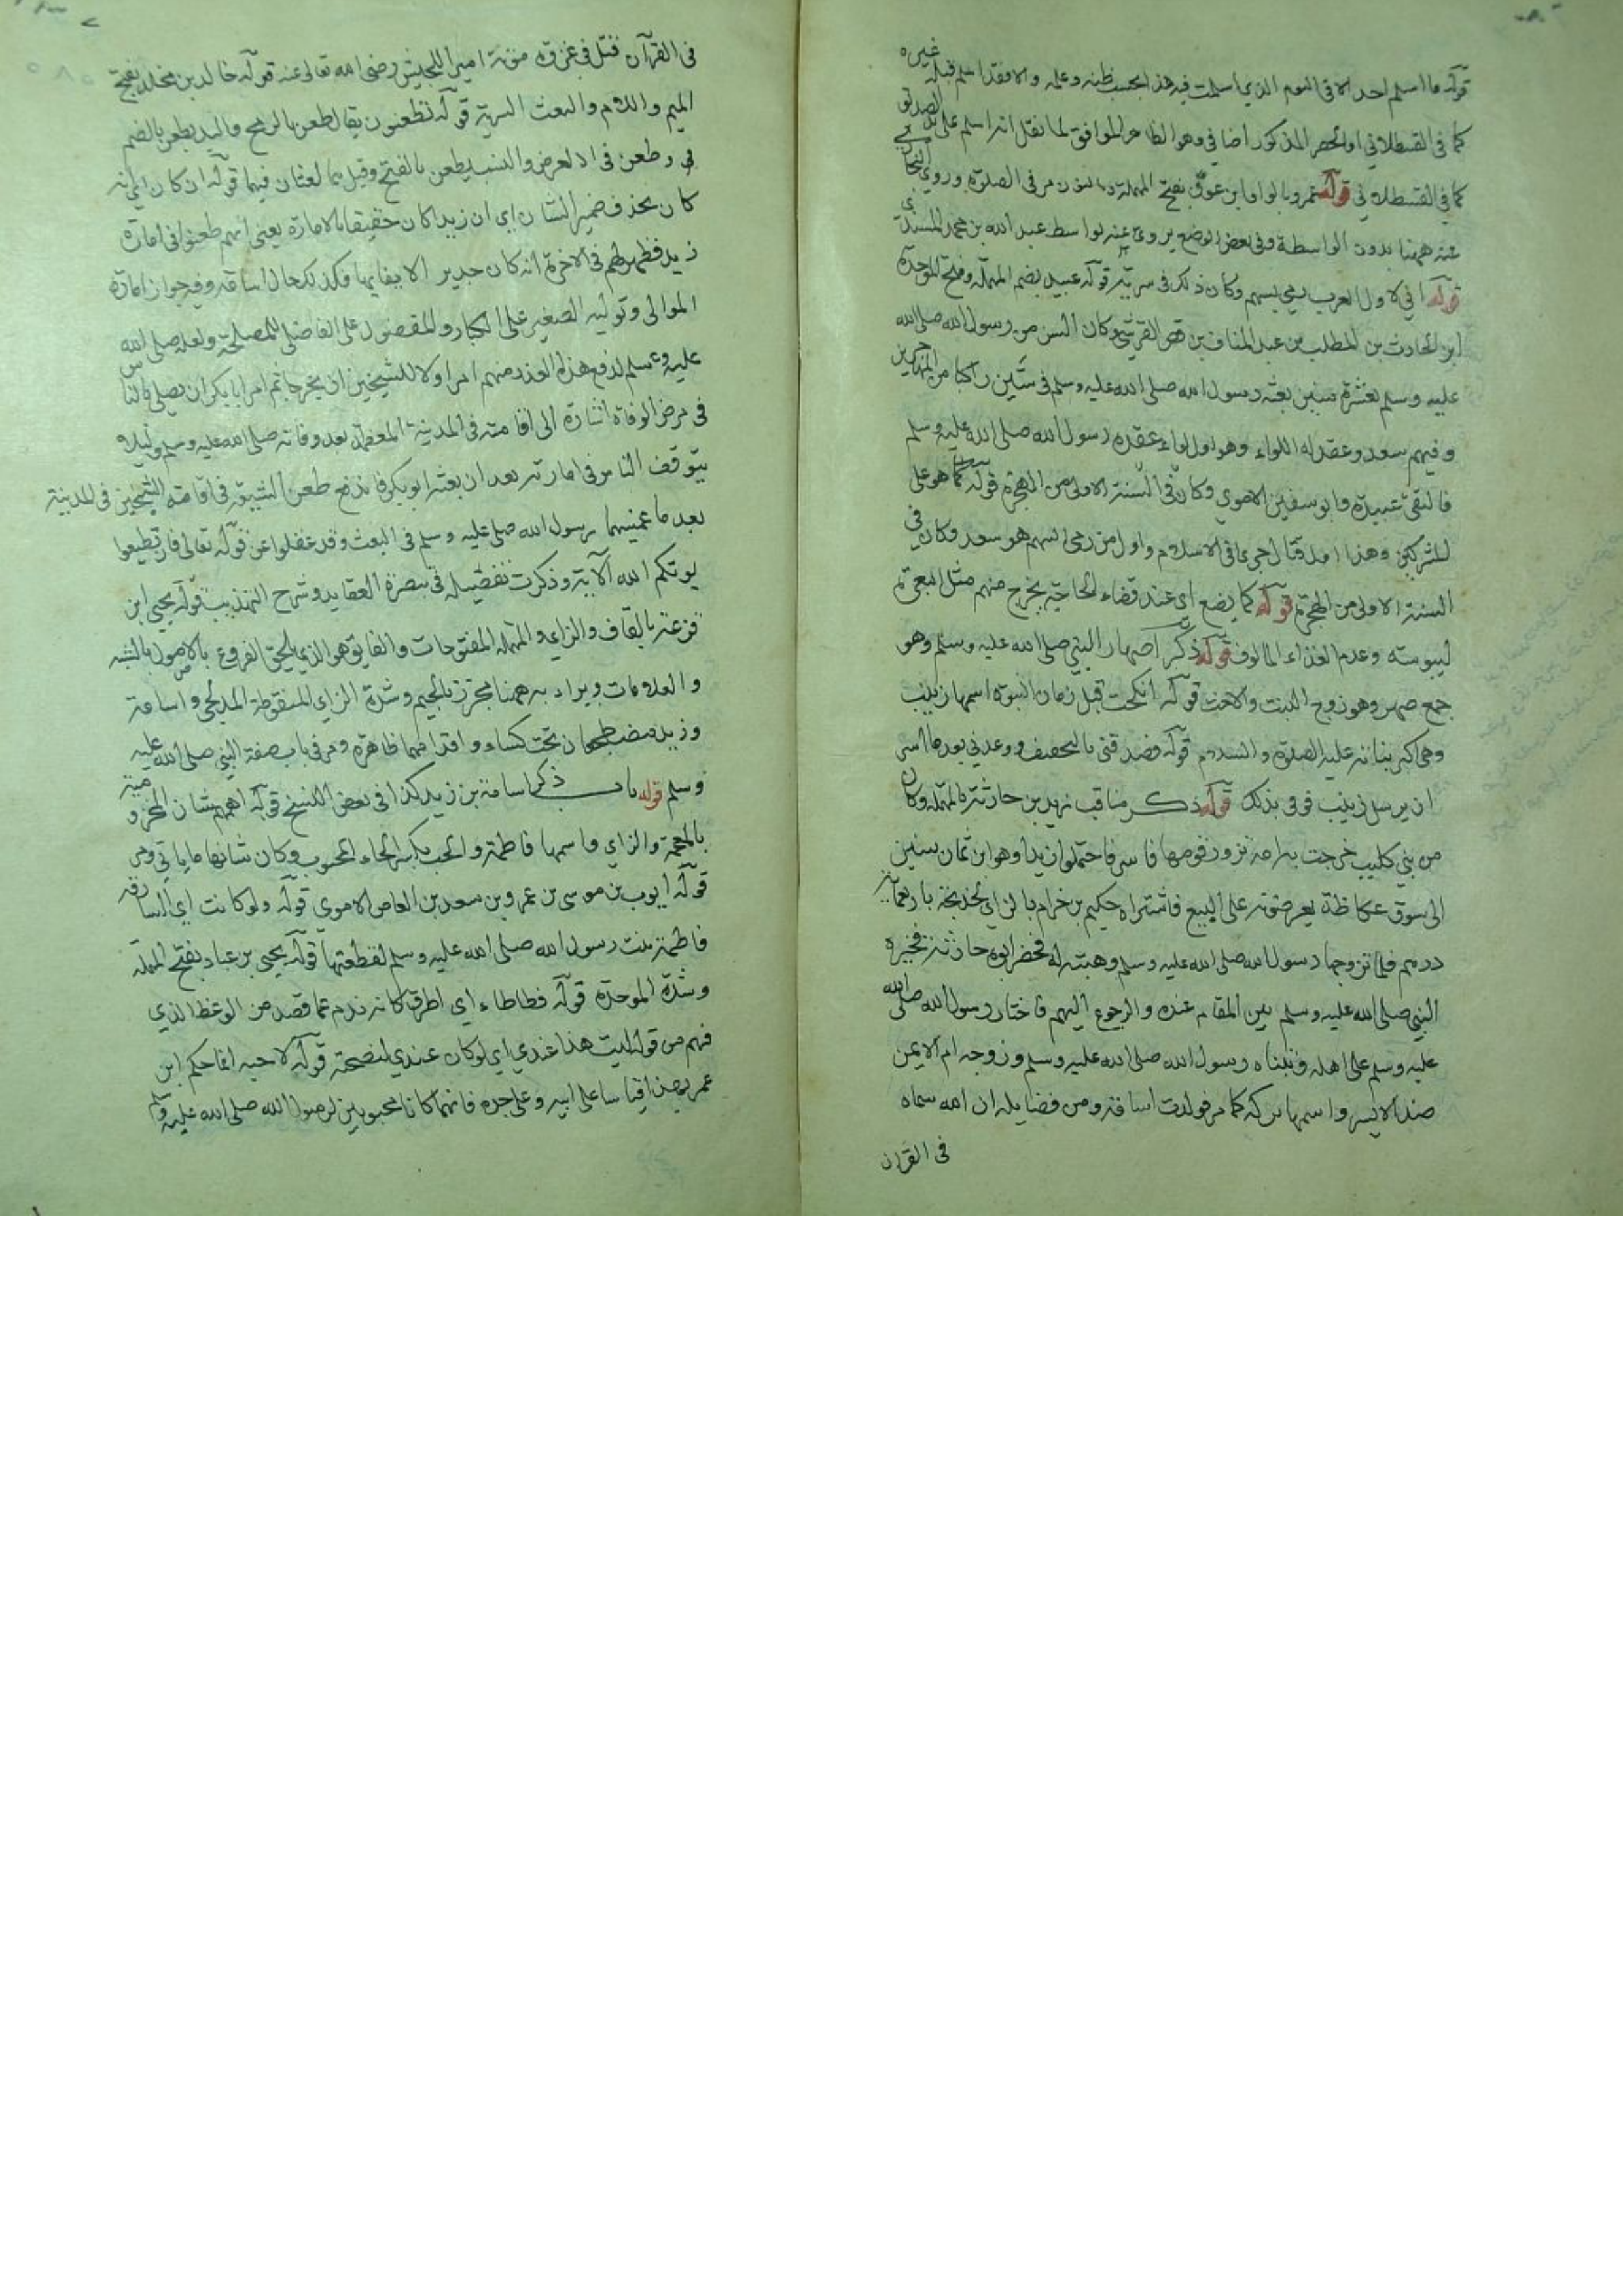 قوله ما اسلم احد الا في اليوم الذي اسلمت فيه هذا بحسب ظنه وعلمه والا فقد اسلم قبله غيره
كما في القسطلاني او الحصر المذكور اضافي وهو الظاهر الموافق لما نقل انه اسلم على يد الصديق
كما في القسطلاني قوله عمرو بالواو ابن عون بفتح المهملة وبالنون مر في الصلوة وروى البخاري
عنه ههنا بدون الواسطة وفي بعض الوضع يروي عنه بواسطة عبد الله بن محمد المسندي
قوله اني لاول العرب رمي بسهم وكان ذلك في سرية قوله عبيد بضم المهملة وفتح الموحدة
ابن الحارث بن المطلب بن عبد المناف بن قصي القرشي وكان اسن من رسول الله صلى الله
عليه وسلم بعشرة سنين بعثه رسول الله صلى الله عليه وسلم في ستين راكبا من المهاجرين
وفيهم سعد وعقد له اللواء وهو اول لواء عقده رسول الله صلى الله عليه وسلم
فالتقى عبيدة وابو سفين الاموي وكان في السنة الاولى من الهجرة قوله كما هو على
المشركين وهذا اول قتال جرى في الاسلام واول من رمى السهم هو سعد وكان في
السنة الاولى من الهجرة قوله كما يضع اي عند قضاء الحاجة يخرج منهم مثل البعرة
ليبوسته وعدم الغذاء المالوف قوله ذكر اصهار النبي صلى الله عليه وسلم وهو
جمع صهر وهو زوج البنت والاخت قوله انكحت قبل زمان النبوة اسمها زينب
وهي اكبر بناته عليه الصلوة والسلام قوله فصدقني بالتخفيف ووعدني بعد ما اسر
ان يرسل زينب فوفى بذلك قوله ذكر مناقب زيد بن حارثة بالمهملة وكان
من بني كليب خرجت به امه تزور قومها فاسر فاحتملوا زيدا وهو ابن ثمان سنين
الى سوق عكاظة يعرضونه على البيع فاشتراه حكيم بن خرام بالزاي لخديجة باربعماية
درهم فلما تزوجها رسول الله صلى الله عليه وسلم وهبته له فحضر ابوه حارثة فخيره
النبي صلى الله عليه وسلم بين المقام عنده والرجوع اليهم فاختار رسول الله صلى الله
عليه وسلم على اهله وتبناه رسول الله صلى الله عليه وسلم وزوجه ام الايمن
ضد الايسر واسمها بركة كما مر فولدت اسامة ومن فضايله ان الله سماه
في القران
في القرآن قتل في غزوة موتة امير الجيش رضي الله تعالى عنه قوله خالد بن مخلد بفتح
الميم واللام والبعث السرية قوله تطعنون يقال طعن بالرمح واليد يطعن بالضم
وطعن في العرض والنسب يطعن بالفتح وقيل هما لغتان فيهما قوله ان كان اي انه
كان بحذف ضمير الشان اي ان زيدا كان حقيقا بالامارة يعني انهم طعنوا في امارة
زيد فظهر لهم في الاخرة انه كان جدير الايفا بها وكذلك حال اسامة وفيه جواز امارة
الموالي وتولية الصغير على الكبار والمفضول على الفاضل للمصلحة ولعله صلى الله
عليه وسلم لدفع هذا العذر منهم امر اولا للشيخين ان يخرجا ثم امر ابا بكر ان يصلي بالناس
في مرض الوفاة اشارة الى اقامته في المدينة المعظمة بعد وفاته صلى الله عليه وسلم ولئلا
يتوقف الناس في امارته بعد ان بعثه ابو بكر فاندفع طعن الشيعة في اقامة الشيخين في المدينة
بعد ما عينهما رسول الله صلى عليه وسلم في البعث وقد غفلوا عن قوله تعالى فان تطيعوا
يوتكم الله الآية وذكرت تفضيله في تبصرة العقايد وشرح التهذيب قوله يحيى ابن
قزعة بالقاف والزاء والمهملة المفتوحات والقايف هو الذي يلحق الفروع بالاصول بالشبه
والعلامات ويراد به ههنا مجزز بالجيم وشدة الزاي المنقوطة المدلجي واسامة
وزيد مضطجعان تحت كساء واقدامهما ظاهرة ومر في باب صفة النبي صلى الله عليه
وسلم قوله باب ذكر اسامة بن زيد كذا في بعض النسخ قوله اهمهم شان المخزومية
بالمعجمة والزاي واسمها فاطمة والحب بكسر الحاء المحبوب وكان شانها ما ياتي ومر
قوله ايوب بن موسى بن عمرو بن سعد بن العاص الاموي قوله ولو كانت اي السارقة
فاطمة بنت رسول الله صلى الله عليه وسلم لقطعتها قوله يحيى بن عباد بفتح المهملة
وشدة الموحدة قوله فطاطاء اي اطرق كانه ندم عما قصد من الوعظ الذي
فهم من قوله ليت هذا عندي اي لو كان عندي لنصحته قوله لاحبه انما حكم ابن
عمر بهذا قياسا على ابيه وعلى جده فانهما كانا محبوبين لرسول الله صلى الله عليه وسلم